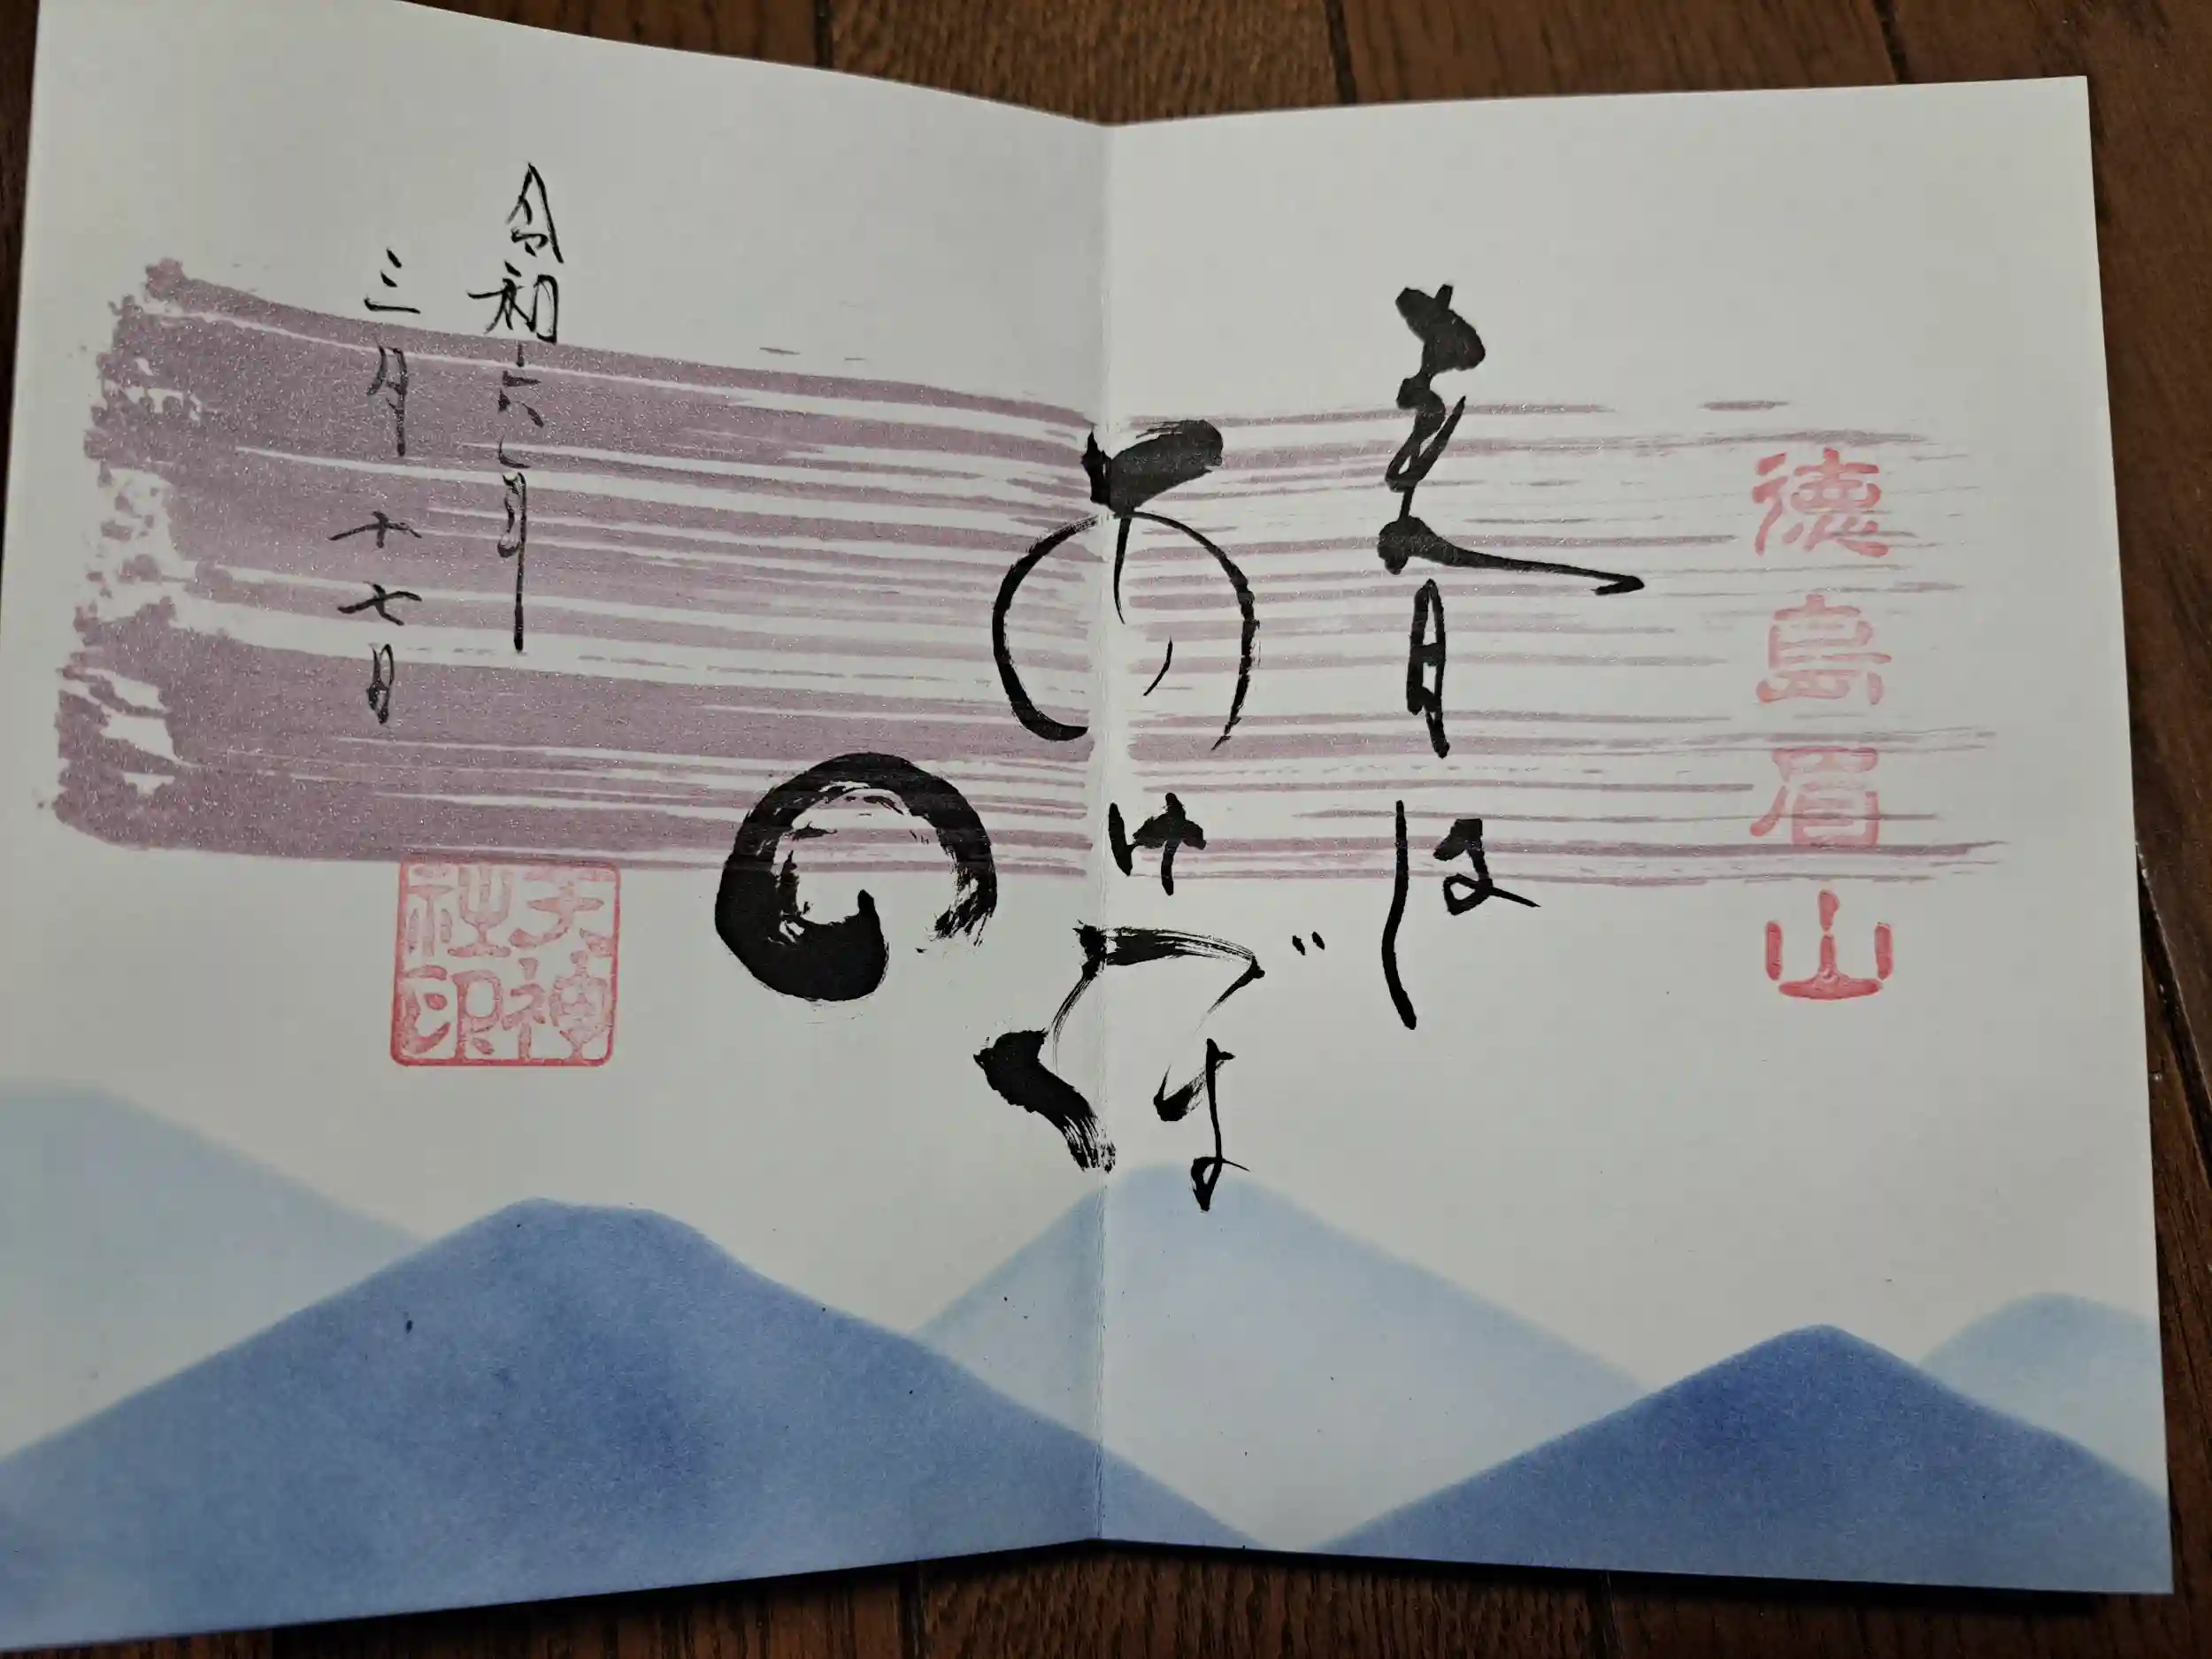 徳島眉山
春は
あけぼの
令和六年
三月十七日
天神
社印